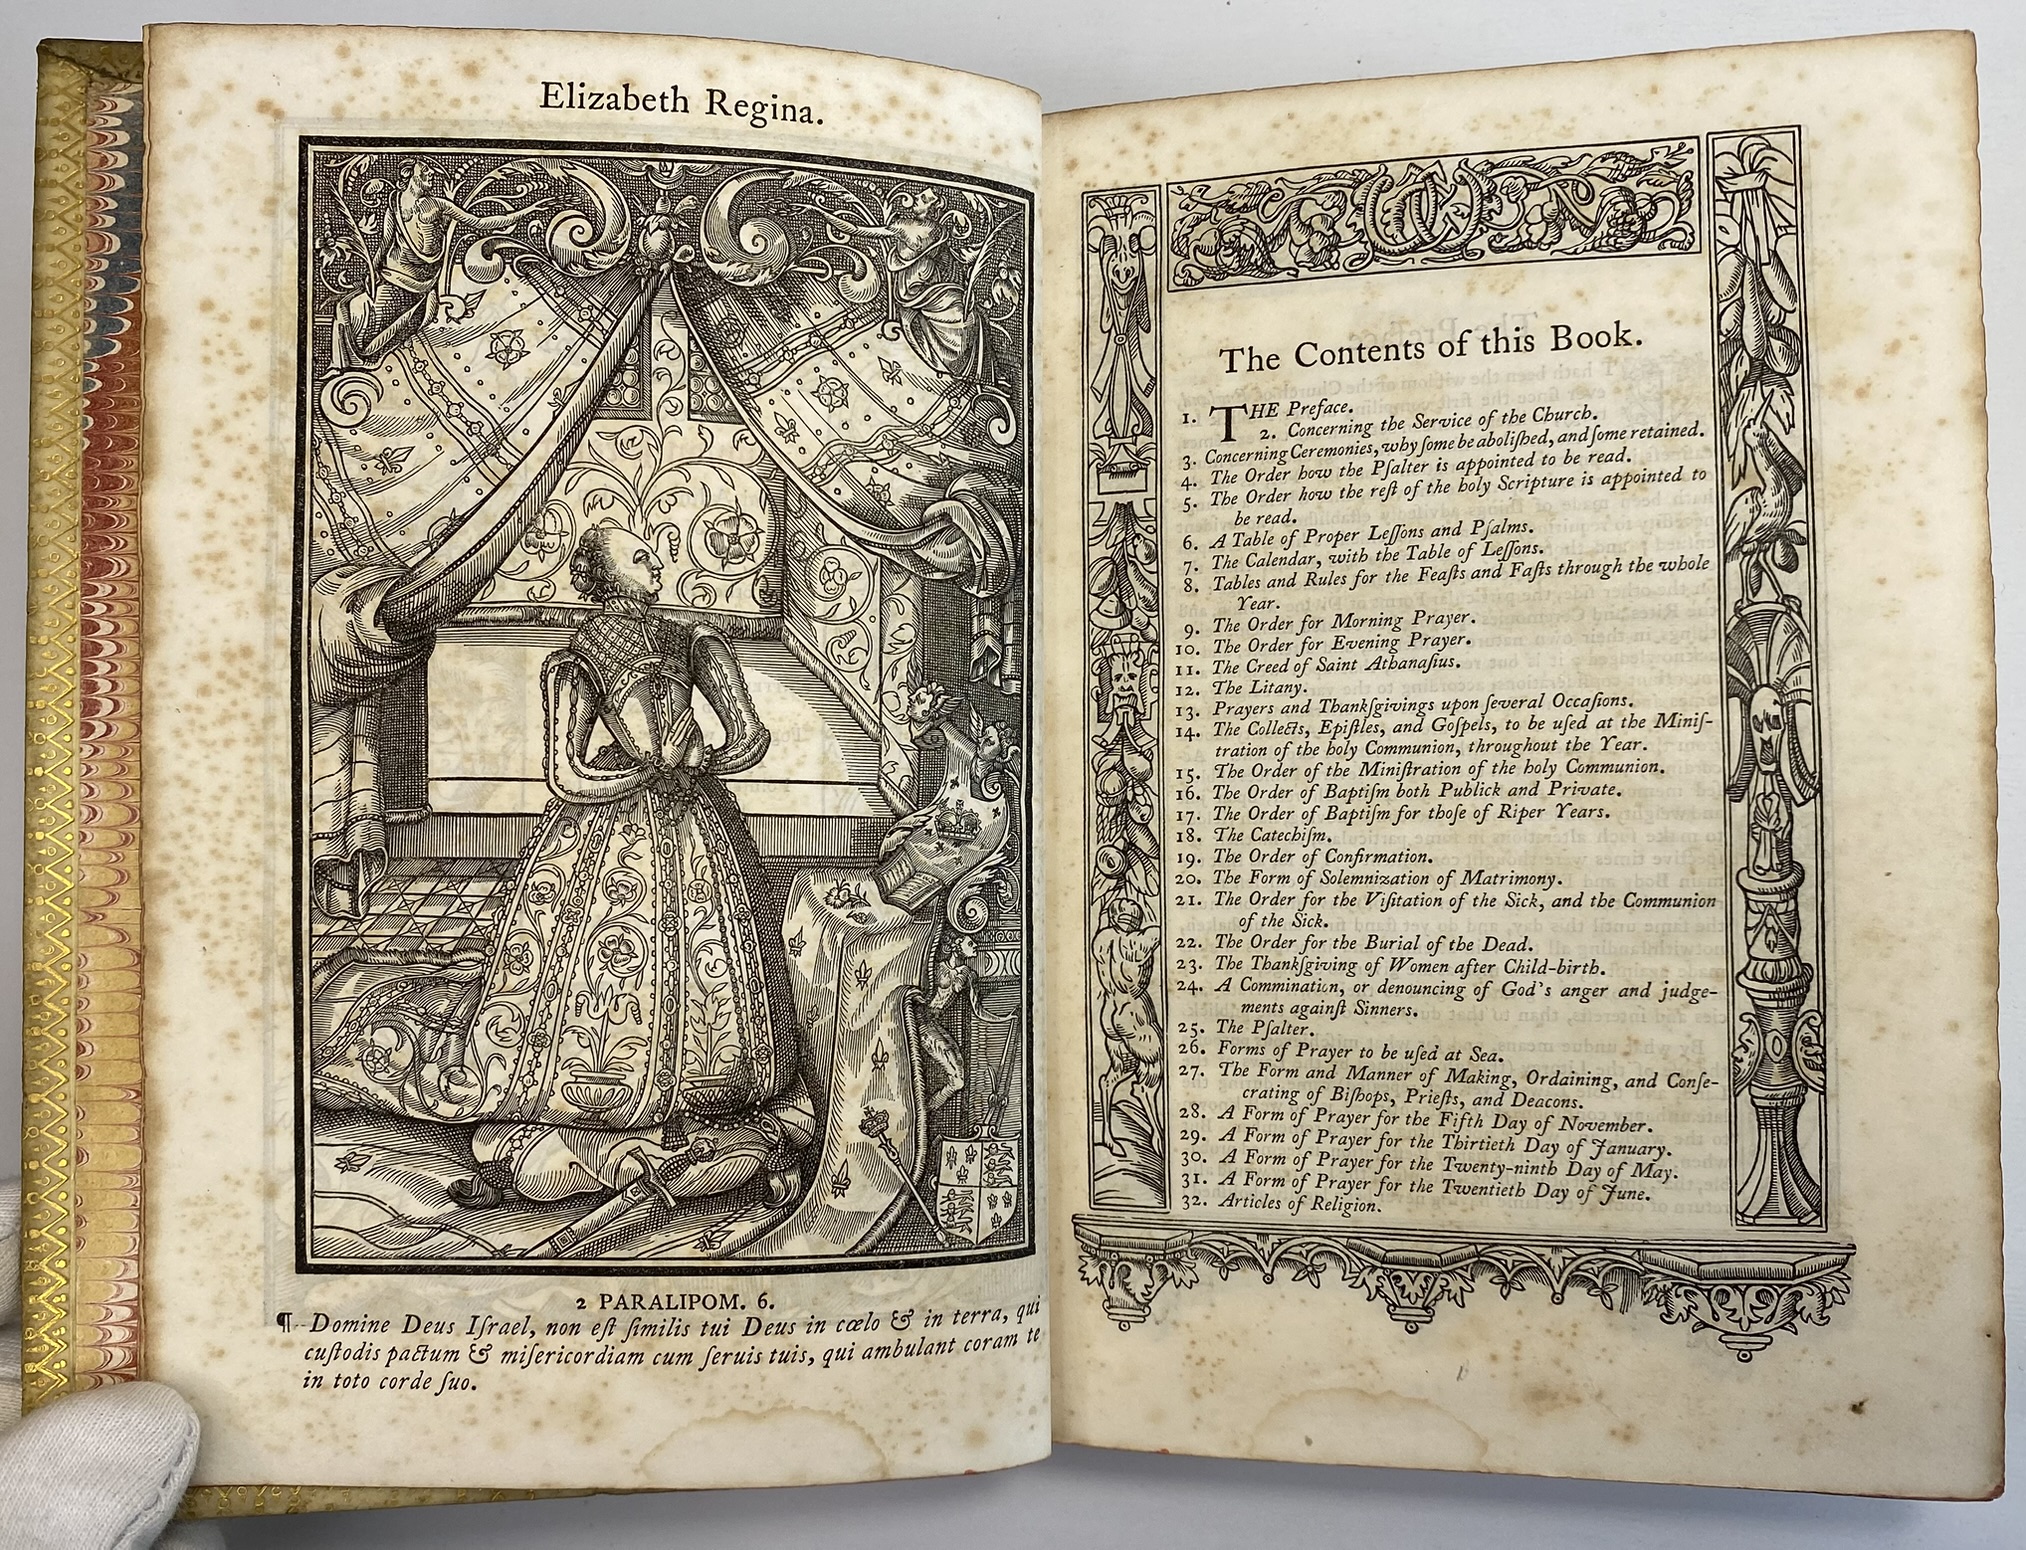 Elizabeth Regina.
2 PARALIPOM. 6.
¶ Domine Deus Iſrael, non eſt ſimilis tui Deus in cœlo & in terra, qui
cuſtodis pactum & miſericordiam cum ſeruis tuis, qui ambulant coram te
in toto corde ſuo.
The Contents of this Book.
1. THE Preface.
2. Concerning the Service of the Church.
3. Concerning Ceremonies, why ſome be aboliſhed, and ſome retained.
4. The Order how the Pſalter is appointed to be read.
5. The Order how the reſt of the holy Scripture is appointed to
be read.
6. A Table of Proper Leſſons and Pſalms.
7. The Calendar, with the Table of Leſſons.
8. Tables and Rules for the Feaſts and Faſts through the whole
Year.
9. The Order for Morning Prayer.
10. The Order for Evening Prayer.
11. The Creed of Saint Athanaſius.
12. The Litany.
13. Prayers and Thankſgivings upon ſeveral Occaſions.
14. The Collects, Epiſtles, and Goſpels, to be uſed at the Miniſ-
tration of the holy Communion, throughout the Year.
15. The Order of the Miniſtration of the holy Communion.
16. The Order of Baptiſm both Publick and Private.
17. The Order of Baptiſm for thoſe of Riper Years.
18. The Catechiſm.
19. The Order of Confirmation.
20. The Form of Solemnization of Matrimony.
21. The Order for the Viſitation of the Sick, and the Communion
of the Sick.
22. The Order for the Burial of the Dead.
23. The Thankſgiving of Women after Child-birth.
24. A Commination, or denouncing of God's anger and judge-
ments againſt Sinners.
25. The Pſalter.
26. Forms of Prayer to be uſed at Sea.
27. The Form and Manner of Making, Ordaining, and Conſe-
crating of Biſhops, Prieſts, and Deacons.
28. A Form of Prayer for the Fifth Day of November.
29. A Form of Prayer for the Thirtieth Day of January.
30. A Form of Prayer for the Twenty-ninth Day of May.
31. A Form of Prayer for the Twentieth Day of June.
32. Articles of Religion.